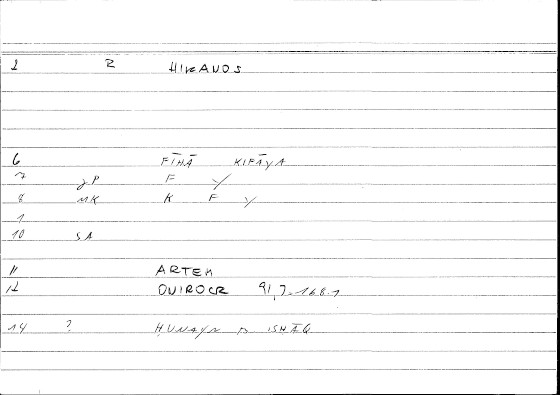 2 R HIKANOS
6 FĪHĀ KIFĀYA
7 JP F Y
8 MK K F Y
1
10 SA
11 ARTEM
12 OVIROCR 91,7-168.1
14 ? ḤUNAYN b ISḤĀQ